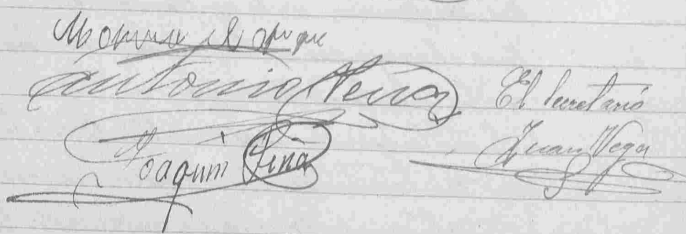 Antonio Peña
Joaquin Piña
El Secretario
Juan Vega